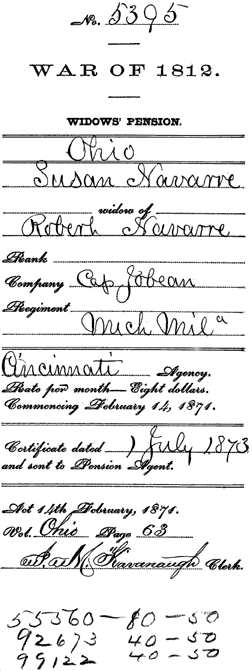 No. 5395
WAR OF 1812.
WIDOWS' PENSION.
Ohio
Susan Navarre
widow of
Robert Navarre
Rank
Company Cap Jobean
Regiment
Mich Mila
Cincinnati Agency.
Rate per month—Eight dollars.
Commencing February 14, 1871.
Certificate dated 1 July 1873
and sent to Pension Agent.
Act 14th February, 1871.
Vol. Ohio Page 63
Kavanaugh Clerk.
55360 - 80 - 50
92673 40 - 50
99122 40 - 50